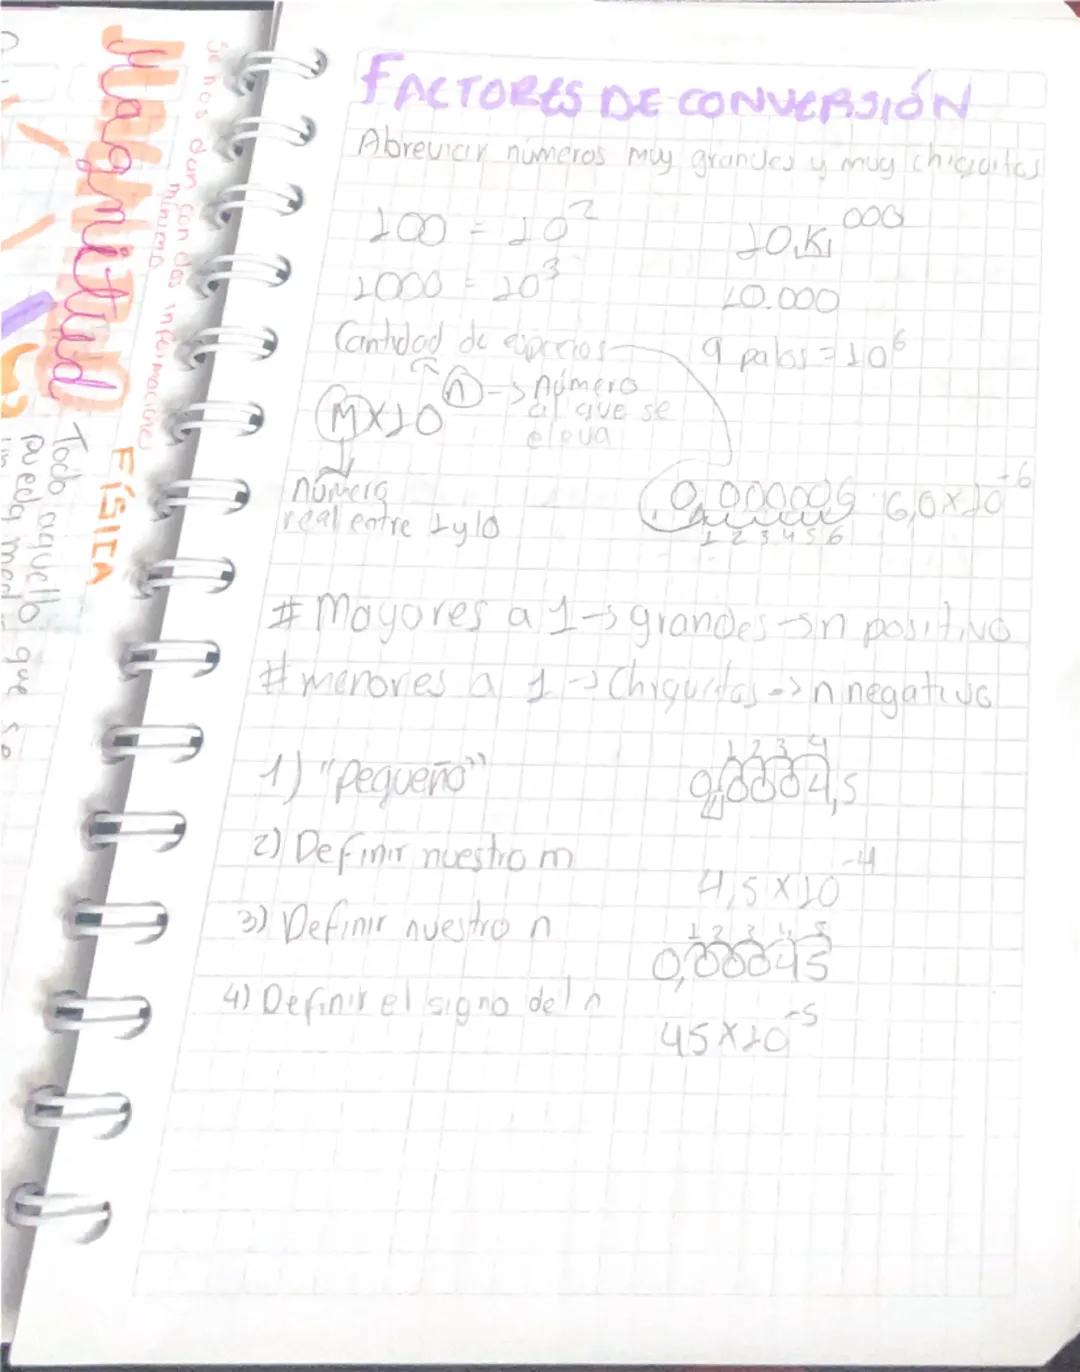 FACTORES DE CONVERSIÓN
Abreviar números muy grandes y muy chiquitos
100 = 10²
1000 = 10³
10.K 000
10.000
Cantidad de espacios
9 palos = 10⁶
M×10ⁿ → número al que se eleva
número
real entre 1 y 10
6,0×10⁻⁶
1 2 3 4 5 6
# Mayores a 1 → grandes → n positivo
# menores a 1 → Chiquitos → n negativo
1) "Pequeño"
1 2 3 4
0,0004,5
2) Definir nuestro m
4,5 × 10⁻⁴
3) Definir nuestro n
1 2 3 4 5
0,00045
4) Definir el signo del n
45×10⁻⁵
Magnitud
Se nos dan con dos informaciones
minimo
FÍSICA
Todo aquello que se